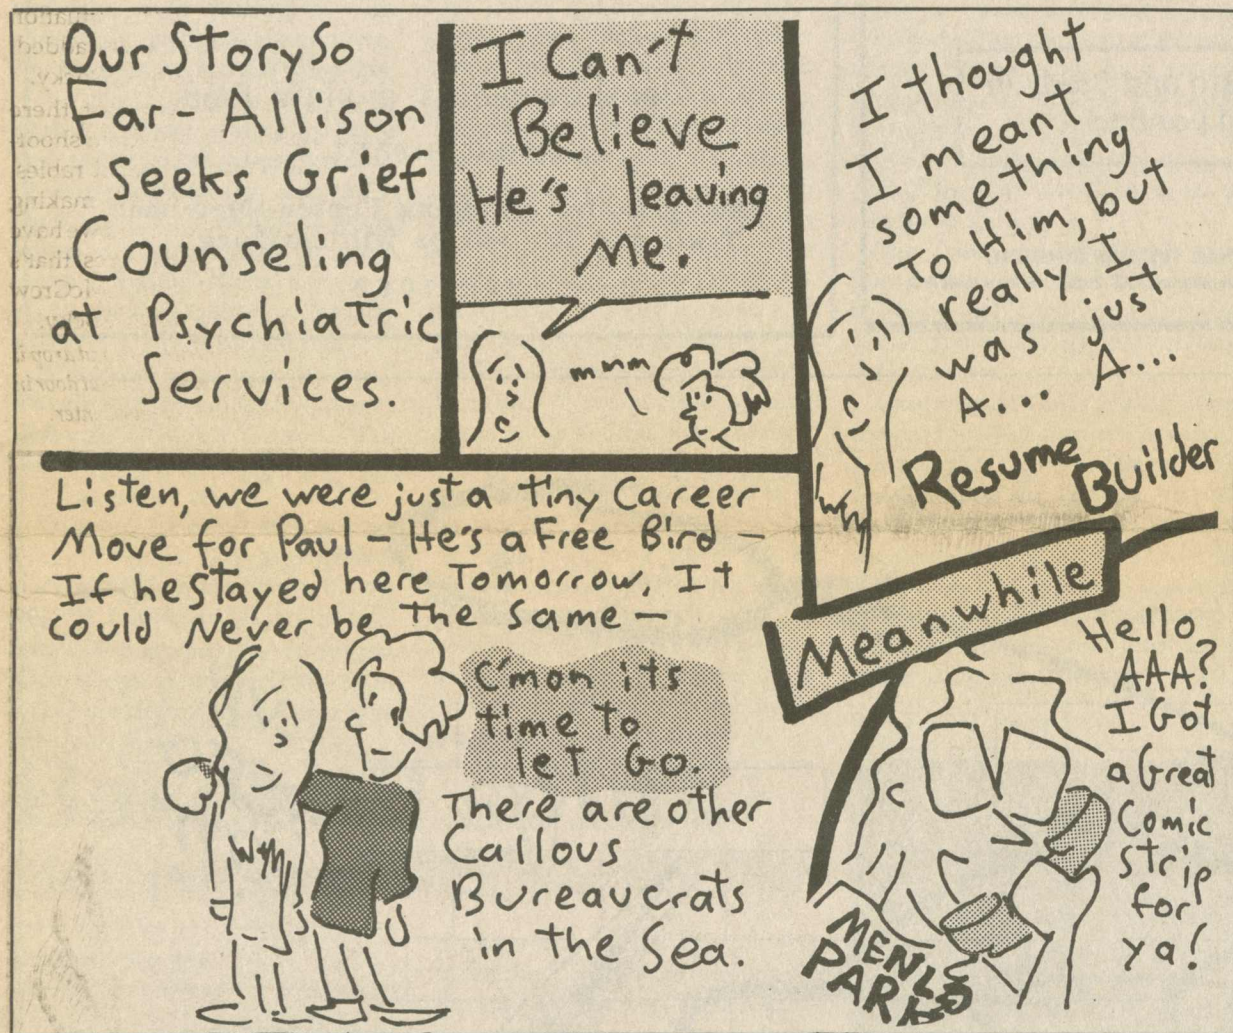 Our Story So
Far - Allison
Seeks Grief
Counseling
at Psychiatric
Services.
I Can't
Believe
He's leaving
Me.
mmm
I thought
I meant
something
To Him, but
really I
was just
A... A...
Resume
Builder
W&M
Listen, we were just a tiny Career
Move for Paul - He's a Free Bird -
If he stayed here Tomorrow, It
could Never be the same -
C'mon its
time to
let Go.
There are other
Callous
Bureaucrats
in the Sea.
W&M
Meanwhile
Hello
AAA?
I Got
a Great
Comic
Strip
for
ya!
MENLO
PARK